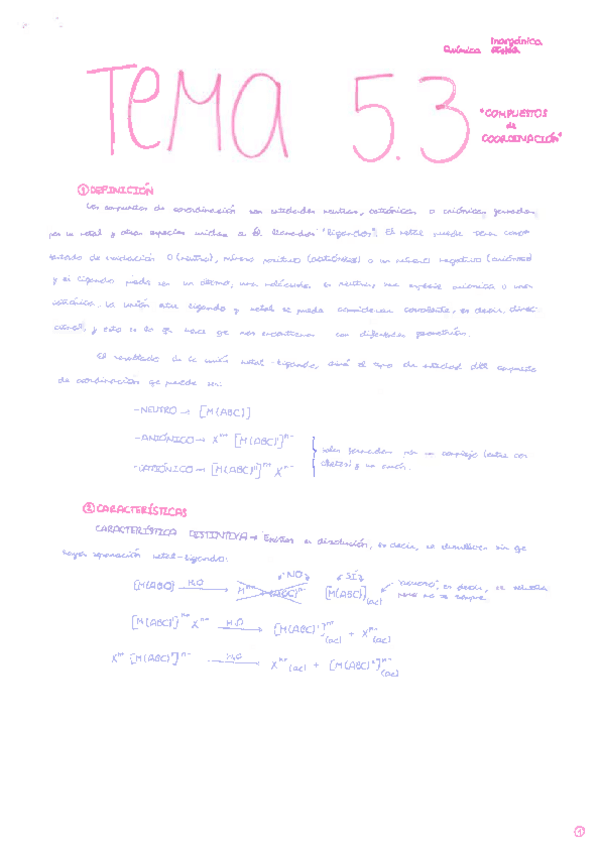 Inorgánica
Química
TEMA 5.3
"COMPUESTOS
de
COORDINACIÓN"
① DEFINICIÓN
Los compuestos de coordinación son entidades neutras, catiónicas o aniónicas formadas
por un metal y otras especies unidas a él llamadas "ligandos". El metal puede tener como
estado de oxidación 0 (neutro), número positivo (catiónico) o un número negativo (aniónico)
y el ligando puede ser un átomo, una molécula neutra, una especie aniónica o una
catiónica. La unión entre ligando y metal se puede considerar covalente, es decir, direc-
cional, y esto es lo que hace que nos encontremos con diferentes geometrías.
El resultado de la unión metal-ligando, será el tipo de entidad del compuesto
de coordinación que puede ser:
- NEUTRO → [M(ABC)]
- ANIÓNICO → Xᵐ⁺ [M(ABC)']ⁿ⁻
- CATIÓNICO → [M(ABC)']ᵐ⁺ Xⁿ⁻
sales formadas por un complejo (entre cor-
chetes) y un
② CARACTERÍSTICAS
CARACTERÍSTICA DISTINTIVA → Existen en disolución, es decir, se disuelven sin que
haya separación metal-ligando:
[M(ABC)] H₂O → NO [M(ABC)](ac) SÍ "neutro", es decir, se
pero no se rompe
[M(ABC)']ᵐ⁺ Xⁿ⁻ H₂O → [M(ABC)']ᵐ⁺(ac) + Xⁿ⁻(ac)
Xᵐ⁺ [M(ABC)']ⁿ⁻ H₂O → Xᵐ⁺(ac) + [M(ABC)']ⁿ⁻(ac)
①